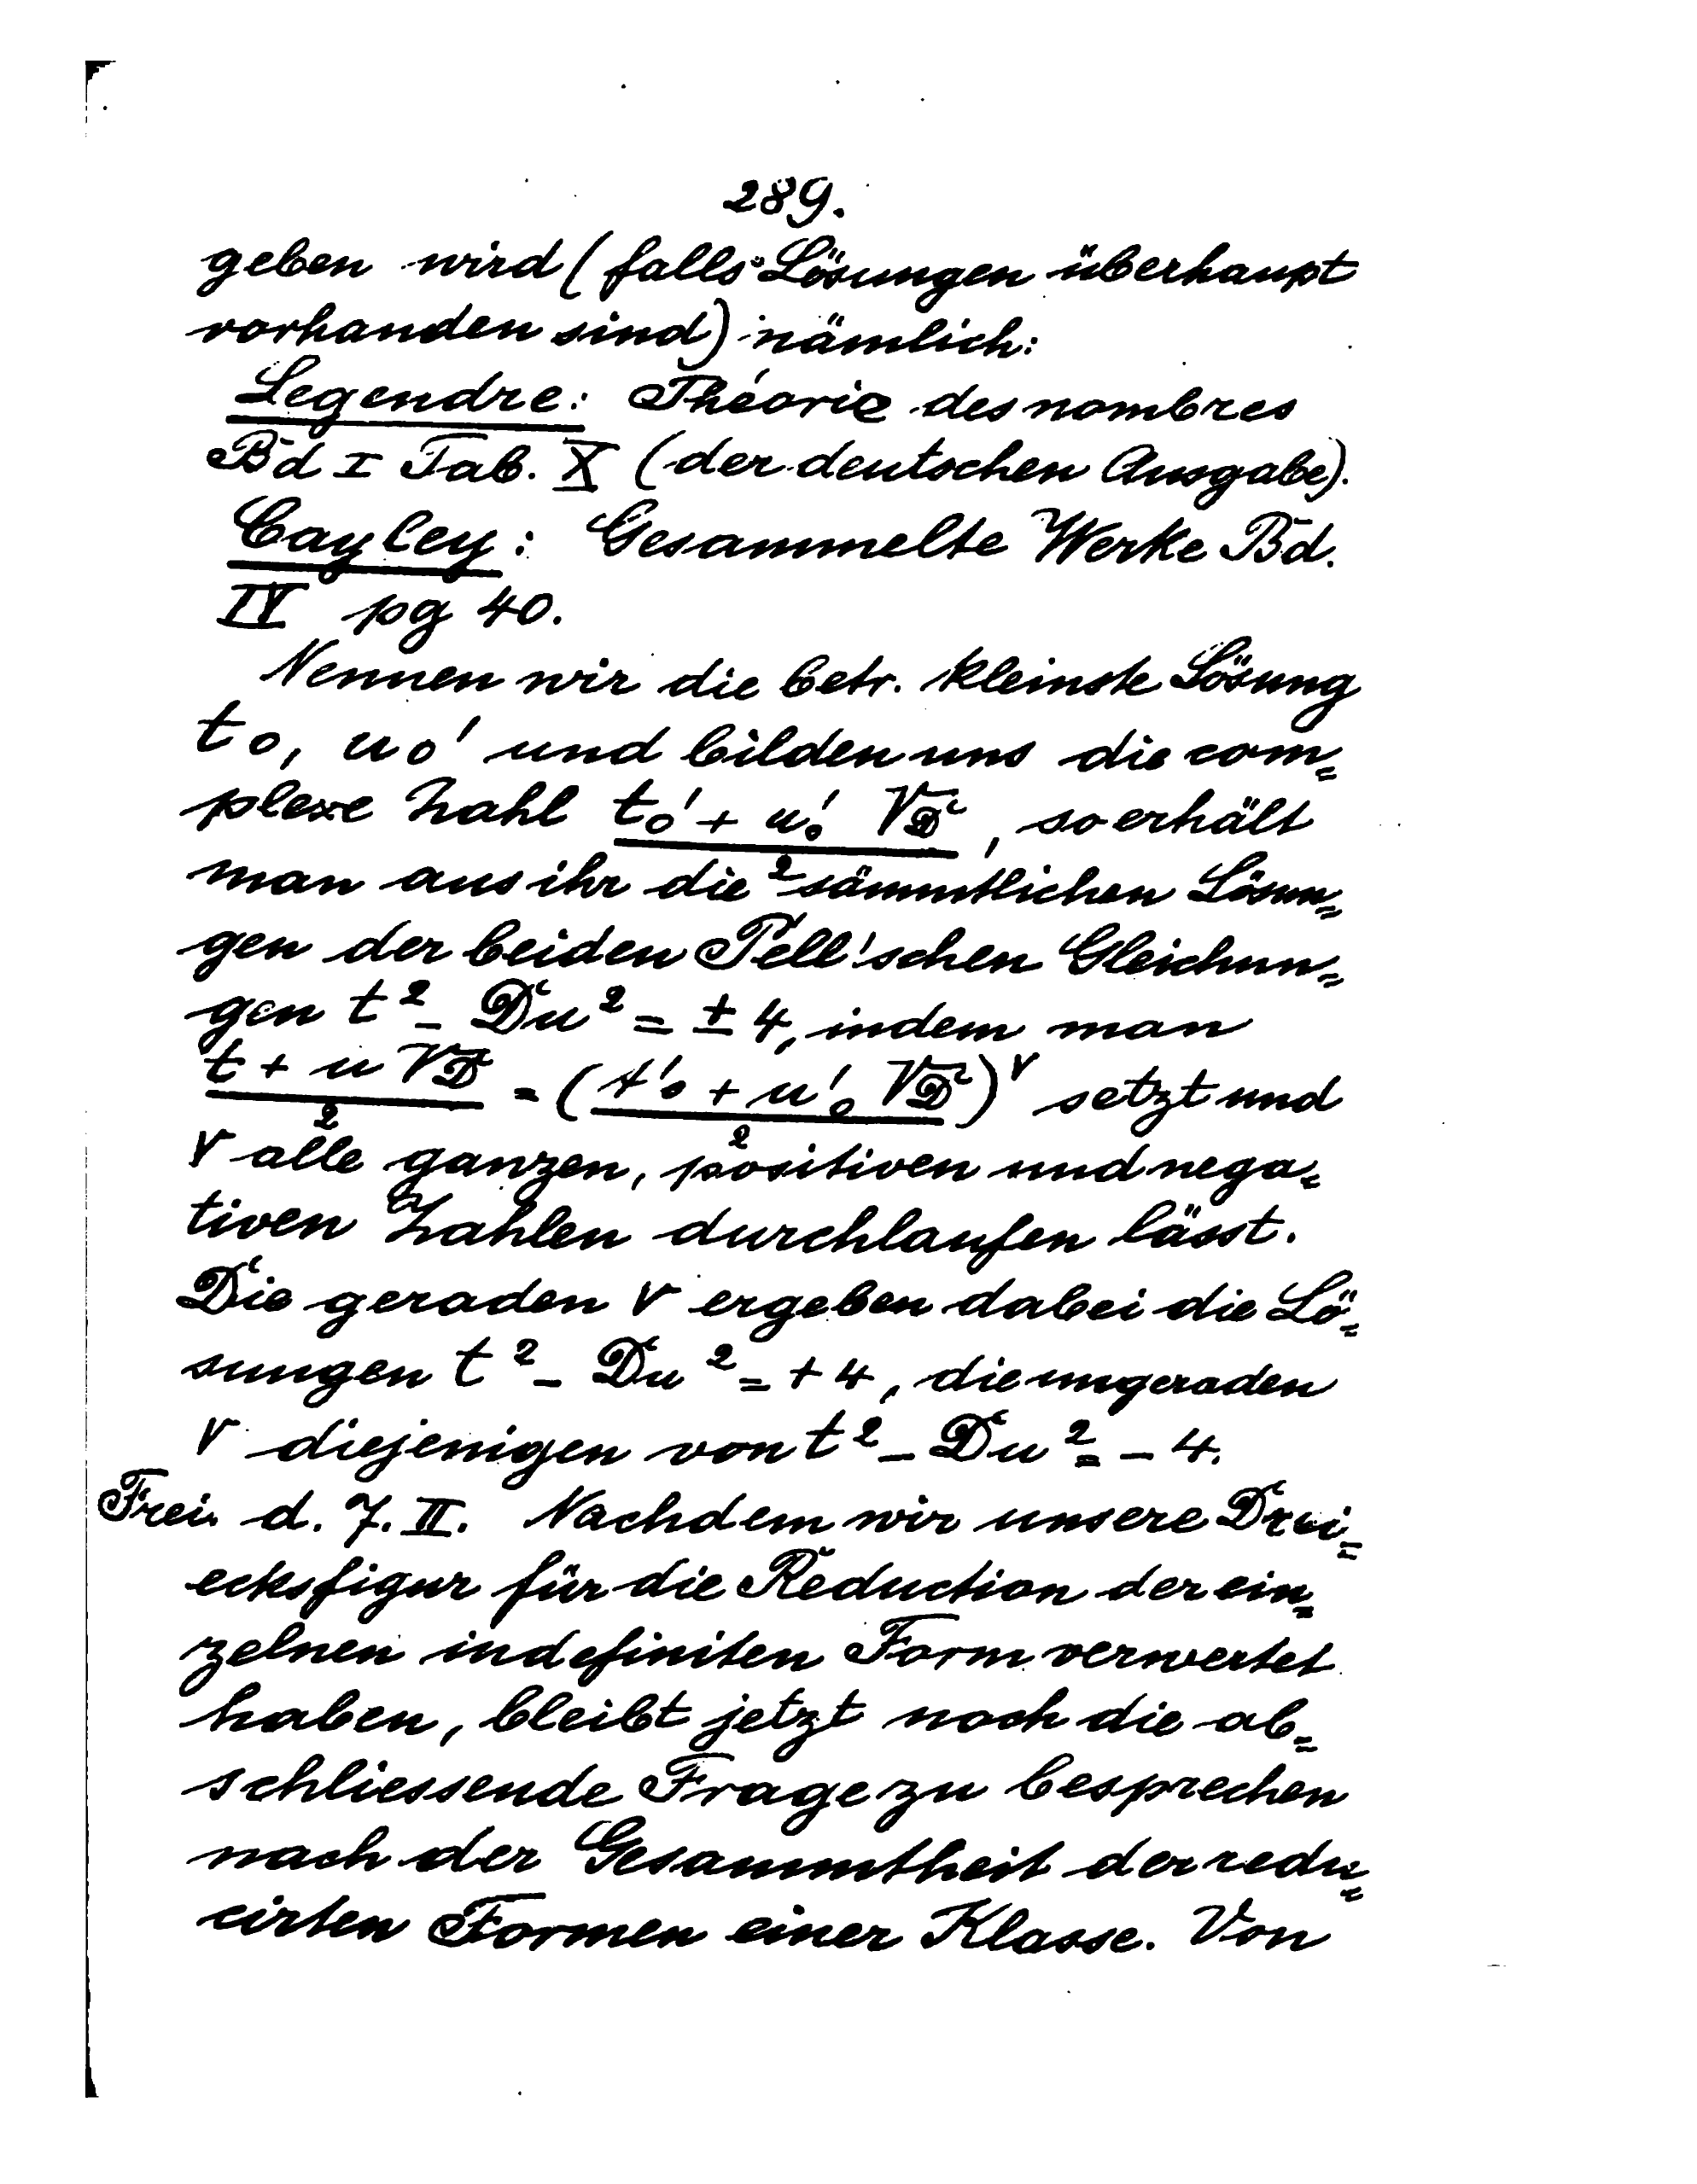 289.
geben wird (falls Lösungen überhaupt
vorhanden sind) nämlich:
Legendre: Théorie des nombres
Bd I Tab. X (der deutschen Ausgabe).
Cayley: Gesammelte Werke Bd.
IV pg 40.
Nennen wir die betr. kleinste Lösung
t₀, u₀' und bilden uns die com=
plexe Zahl (t₀' + u₀' √D)/2, so erhält
man aus ihr die sämmtlichen Lösun=
gen der beiden Pell'schen Gleichun=
gen t² - Du² = ± 4, indem man
(t + u √D)/2 = ((t'₀ + u'₀ √D)/2)^ν setzt und
ν alle ganzen, positiven und nega=
tiven Zahlen durchlaufen lässt.
Die geraden ν ergeben dabei die Lö=
sungen t² - Du² = + 4, die ungeraden
ν diejenigen von t² - Du² = - 4.
Frei. d. 7. II. Nachdem wir unsere Drei=
ecksfigur für die Reduction der ein=
zelnen indefiniten Form verwertet
haben, bleibt jetzt noch die ab=
schliessende Frage zu besprechen
nach der Gesammtheit der redu=
cirten Formen einer Klasse. Von